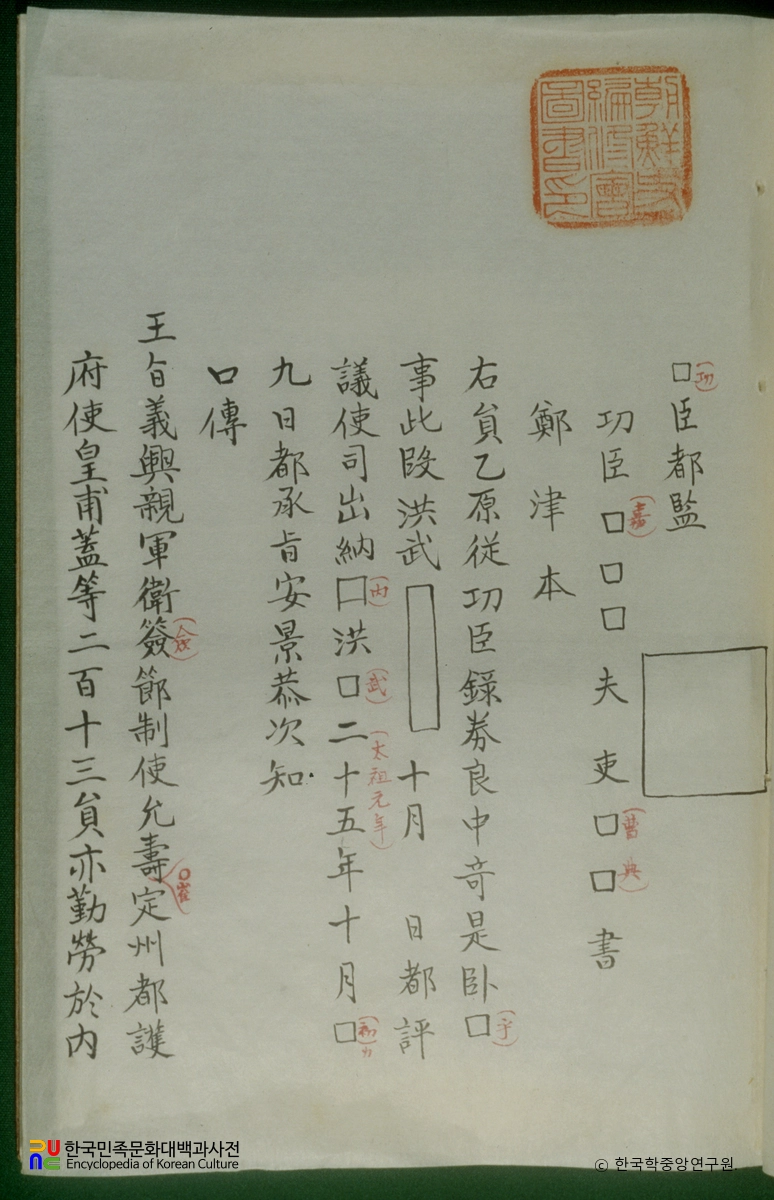 朝鮮史
編修會
圖書印
□(功)臣都監
功臣□(嘉)□□夫吏□(曹)□(典)書
鄭津本
右員乙原從功臣錄券良中竒是卧□(乎)
事此段洪武 十月 日都評
議使司出納□(內)洪□(武)二十五年(太祖元年)十月□(初カ)
九日都承旨安景恭次知
口傳
王旨義興親軍衛簽節制使允壽定州都護
府使皇甫蓋等二百十三員亦勤勞於內
한국민족문화대백과사전
Encyclopedia of Korean Culture
© 한국학중앙연구원